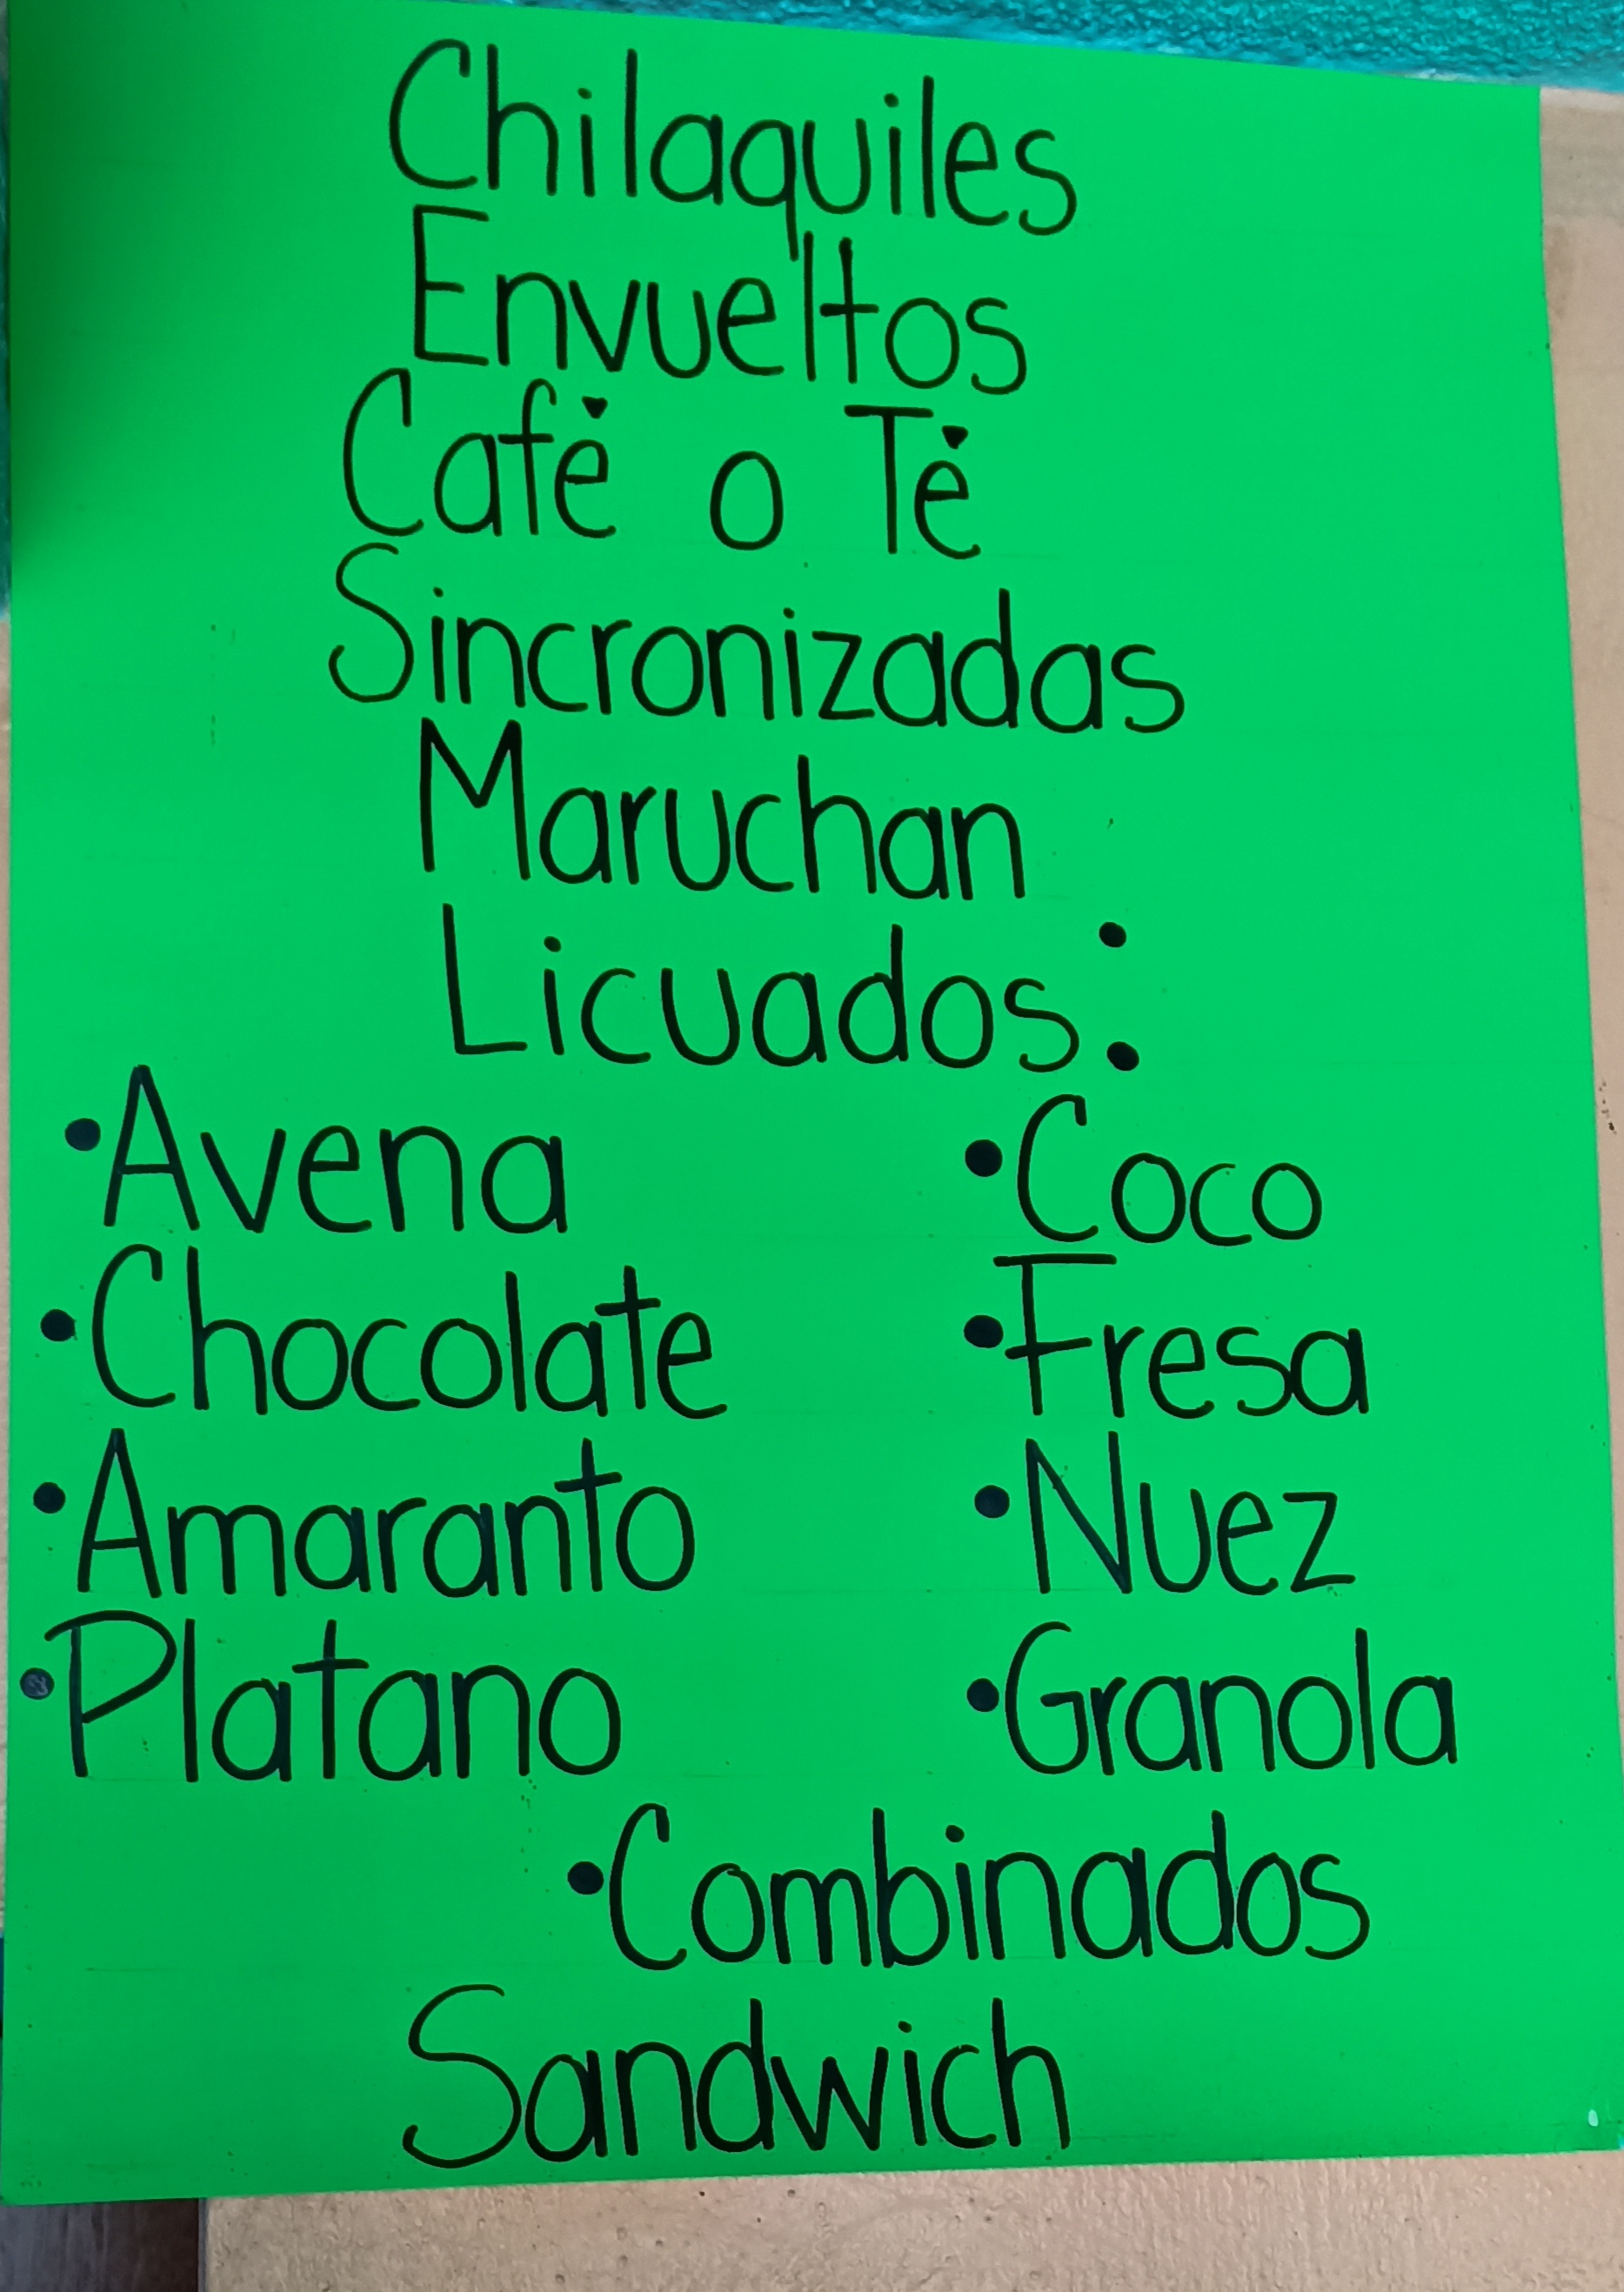 Chilaquiles
Envueltos
Café o Té
Sincronizadas
Maruchan
Licuados:
•Avena
•Chocolate
•Amaranto
•Platano
•Coco
•Fresa
•Nuez
•Granola
•Combinados
Sandwich